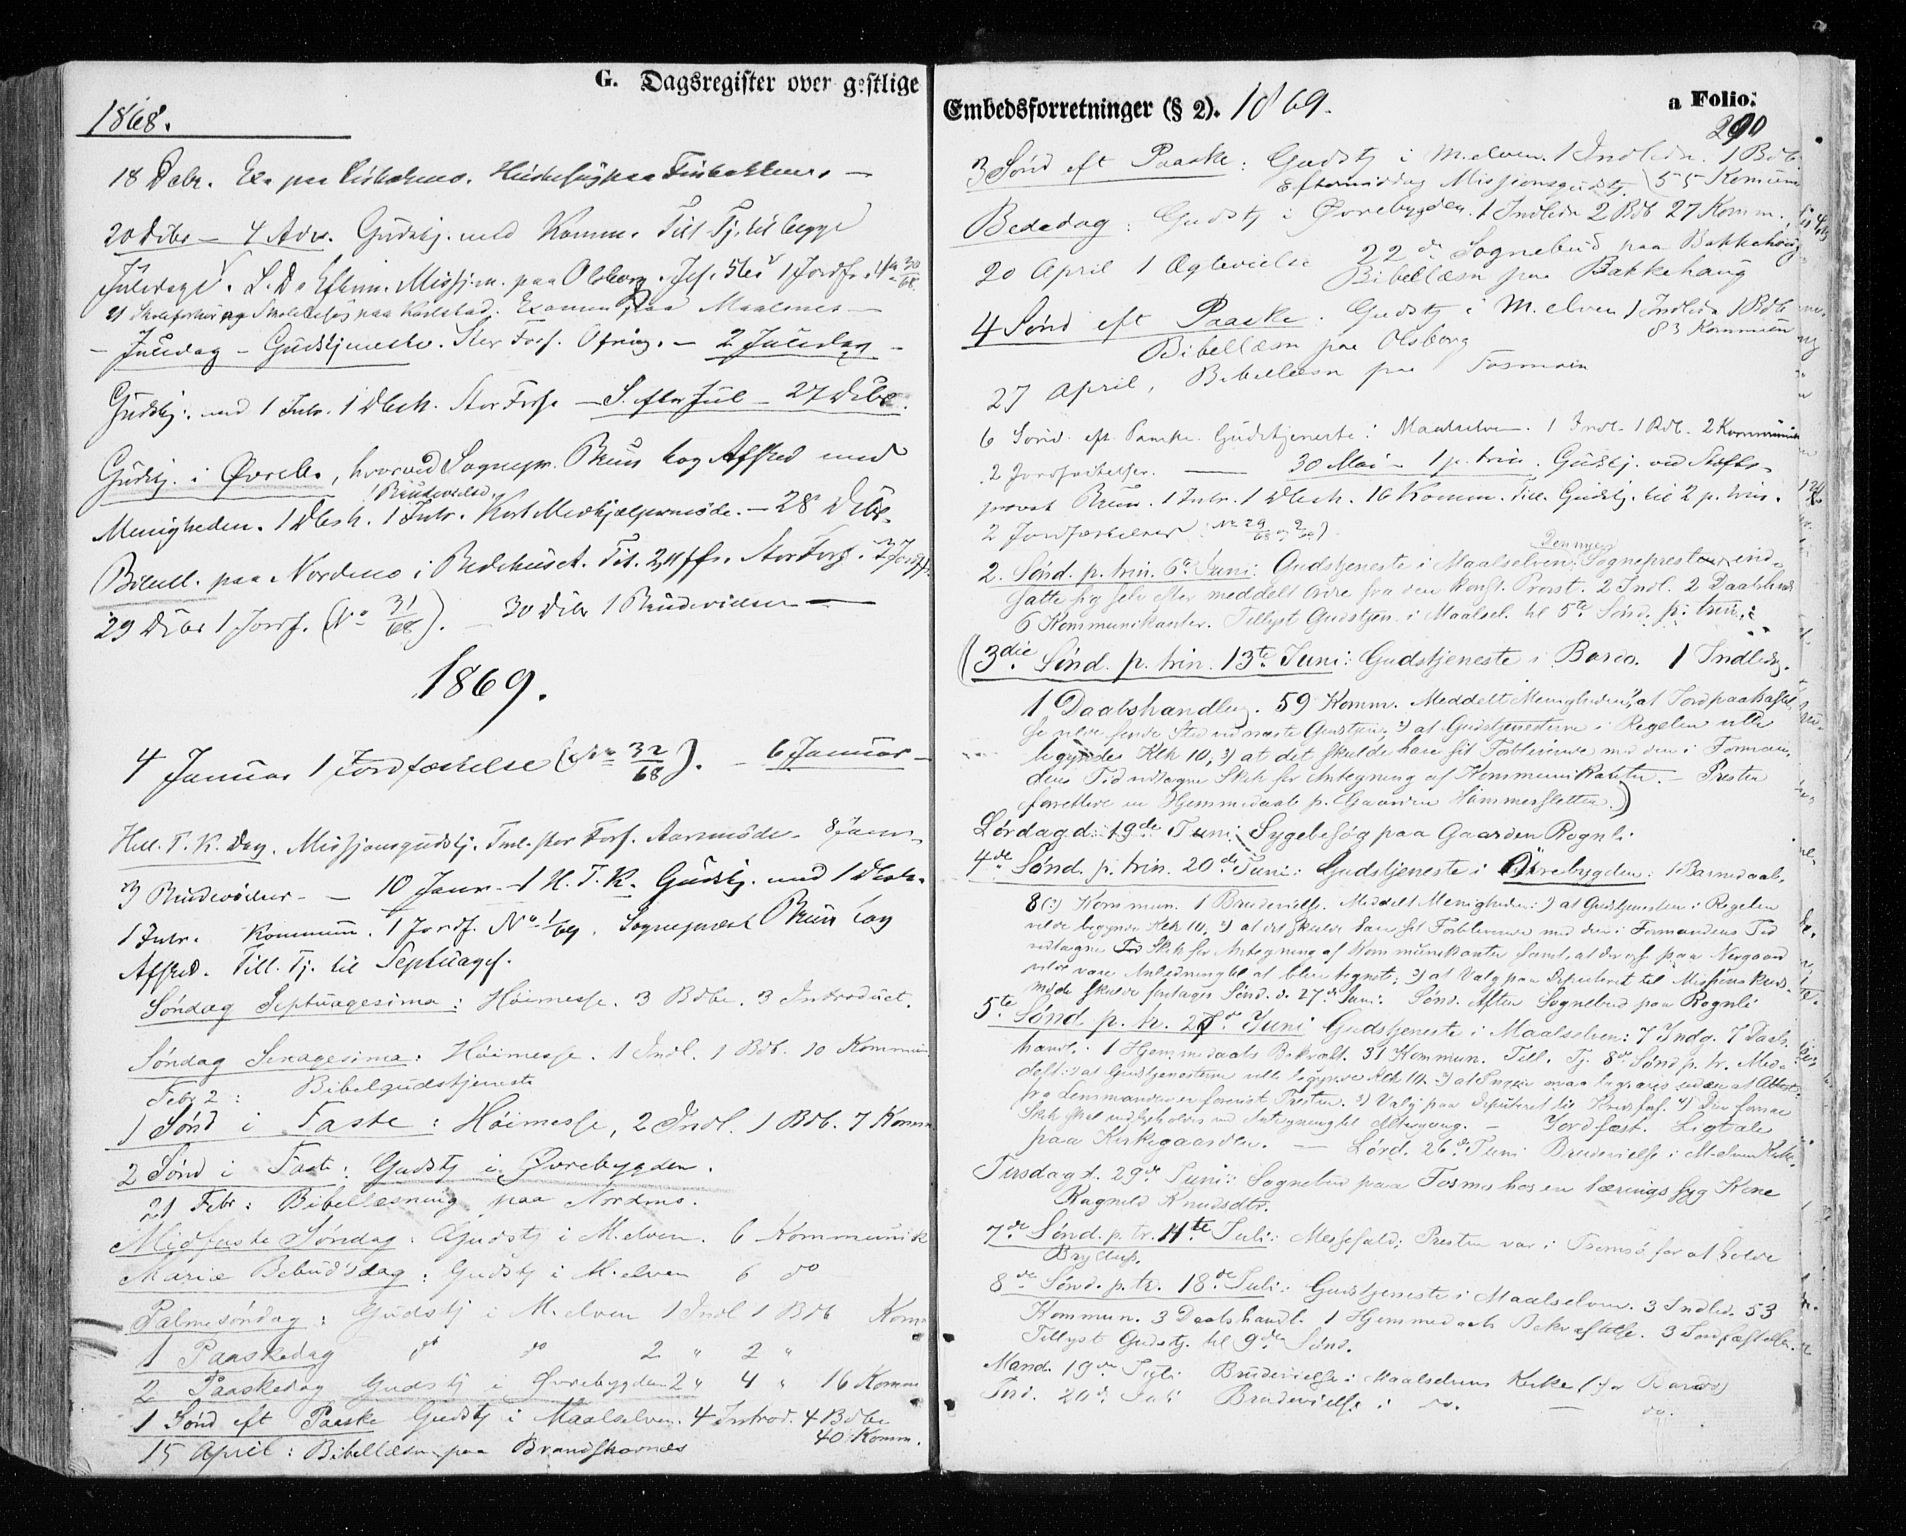 G. Dagsregister over gestlige
1868.
18 Debr. Ex. paa
20 Dibr - 4 Adv. Gudstj. med Komm. Till Tj. til begge
Juledage. S. D. Efterm. Missj.m. paa Olsborg. 1 Jordf. 30/68.
21 Karlstad. Examen paa Maalsnes -
- Juledag - Gudstjeneste. Stor Fors. Ofring. - 2 Juledag -
Gudstj. med 1 Intr. 1 Dbsh. Stor Fors. - S. efter Jul - 27 Dibr.
Gudstj. i Øvreb., hvorved Sognepr. Bruun tog Afsked med
1 Brudevielse.
Menigheden. 1 Dbsh. 1 Intr. Kort Medhjælpermøde. - 28 Dibr.
Bibell. paa Nordmo i Bedehuset. Stor Fors. 2 Jordf.
29 Dibr 1 Jordf. (No 31/68). - 30 Dibr 1 Brudevielse -
1869.
4 Januar 1 Jordfæstelse (No 32/68). - 6 Januar -
Hell. T. K. Dag. Missjonsgudstj. stor Fors. Aarsmøde. 8 Janr -
3 Brudevielser - - 10 Janr - 1 S. H. T. K. Gudstj. med 1 Dbsh.
1 Intr. Kommun. 1 Jordf. No 1/69. Sogneprest Bruun tog
Afsked. Till. Tj. til Septuages.
Søndag Septuagesima: Høimesse. 3 Bdbe. 3 Introduct.
Søndag Sexagesima: Høimesse. 1 Indl. 1 Bdb. 10 Kommun
Febr 2: Bibelgudstjeneste
1 Sønd i Faste: Høimesse, 2 Indl. 1 Bdb. 7 Komm
2 Sønd i Faste: Gudstj i Øvrebygden.
21 Febr: Bibellæsning paa Nordmo.
Midfaste Søndag: Gudstj i M.elven. 6 Kommunik
Mariæ Bebud'sdag: Gudstj i M.elven 6 do
Palmesøndag: Gudstj i M.elven 1 Indl 1 Bdb Komm
1 Paaskedag do do 2 " 2 "
2 Paaskedag Gudstj i Øvrebygden 2 " 4 " 16 Komm
1 Sønd eft Paaske Gudstj i Maalselven. 4 Introd. 4 Bdbe
40 Komm.
15 April: Bibellæsn. paa Brandskognes
Embedsforretninger (§ 2). 1869.
a Folio:
290
3 Sønd eft Paaske: Gudstj i M.elven. 1 Indledn. 1 Bdb
Eftermiddag Missionsgudstj. 55 Kommun
Bededag: Gudstj i Øvrebygden. 1 Indledn 2 Bdb 27 Komm.
20 April 1 Ægtevielse 22de Sognebud paa Bakkehaug
Bibellæsn paa Bakkehaug
4 Sønd eft Paaske. Gudstj i M.elven 1 Indledn 1 Bdb
83 Kommun
Bibellæsn paa Olsborg
27 April, Bibellæsn paa Fosmoen
6 Sønd. eft. Paaske. Gudstjeneste i Maalselven. 1 Indl. 1 Bdb. 2 Kommunik
2 Jordfæstelser. - 30 Mai - 1 p. trin. Gudstj. ved Stifts-
provst Bruun. 1 Intr. 1 Dbsh. 16 Komm. Till. Gudstj. til 2 p. trin.
2 Jordfæstelser (No 29/68 og 2/69).
Den nye
2. Sønd. p. trin. 6te Juni: Gudstjeneste i Maalselven. Sognepresten ind-
satte sig selv efter meddelt Ordre fra den konst. Provst. 2 Indl. 2 Daabshandl
6 Kommunikanter. Tillyst Gudstjen. i Maalsel. til 5te Sønd. p. trin.
(3die Sønd. p. trin. 13te Juni: Gudstjeneste i Bardo. 1 Indledn.
1 Daabshandling. 59 Komm. Meddelt Menigheden 1) at Jordpaakastel-
se vilde finde Sted ved næste Gudstjen., 2) at Gudstjenesterne i Regelen ville
begyndes Klk 10, 3) at det skulde have sit Forblivende med den i Forman-
dens Tid vedtagne Skik for Antegning af Kommunikanter. - Presten
forrettede en Hjemmedaab p. Gaarden Hammersletten.)
Lørdag d: 19de Juni Sygebesøg paa Gaarden Rognli.
4de Sønd. p. trin. 20de Juni: Gudstjeneste i Øvrebygden: 1 Barnedaab.
8 Kommun. 1 Brudevielse. Meddelt Menigheden: 1) at Gudstjenesten i Regelen
vilde begynde Klk 10, 2) at det skulde have sit Forblivende med den i Formandens Tid
vedtagne Skik for Antegning af Kommunikanter samt, at der ogs paa Nergaard
vilde være Anledning til at blive tegnet; 3) at Valg paa Deputeret til Missions Kreds-
møde skulde foretages Sønd. d. 27de Juni. Sønd. Aften Sognebud paa Rognli
5te Sønd. p. tr. 27de Juni Gudstjeneste i Maalselven: 7 Indg. 7 Daabs
handl. 1 Hjemmedaabs Bekræft. 31 Kommun. Till. Tj. 8de Sønd p. tr. Med-
delt: 1) at Gudstjenesterne ville begynde Klk 10. 2) at Ingen maa begraves uden at Attest
fra Lensmanden er forevist Presten. 3) Valg paa Deputeret til 4) Den forrige
Skik skal vedbeholdes ved Antegning til Altergang. - Jordfæst. Ligtale
paa Kirkegaarden. - Lørd. 26de Juni Brudevielse i M.elven Kirke.
Tirsdag d. 29de Juni: Sognebud paa Fosmo hos en tæringssyg Kone
Ragnild Knudsdtr.
7de Sønd. p. tr. 11te Juli: Messefald; Presten var i Tromsø for at holde
Bryllup.
8de Sønd. p. tr. 18de Juli: Gudstjeneste i Maalselven. 3 Indled. 53
Kommun. 3 Daabshandl. 1 Hjemmedaabs Bekræftelse. 3 Jordfæstelser.
Tillyst Gudstj. til 9de Sønd.
Mand. 19de Juli Brudevielse i Maalselvens Kirke (fr Bardo)
Tirsd. 20de Juli Brudevielse i do. - do.